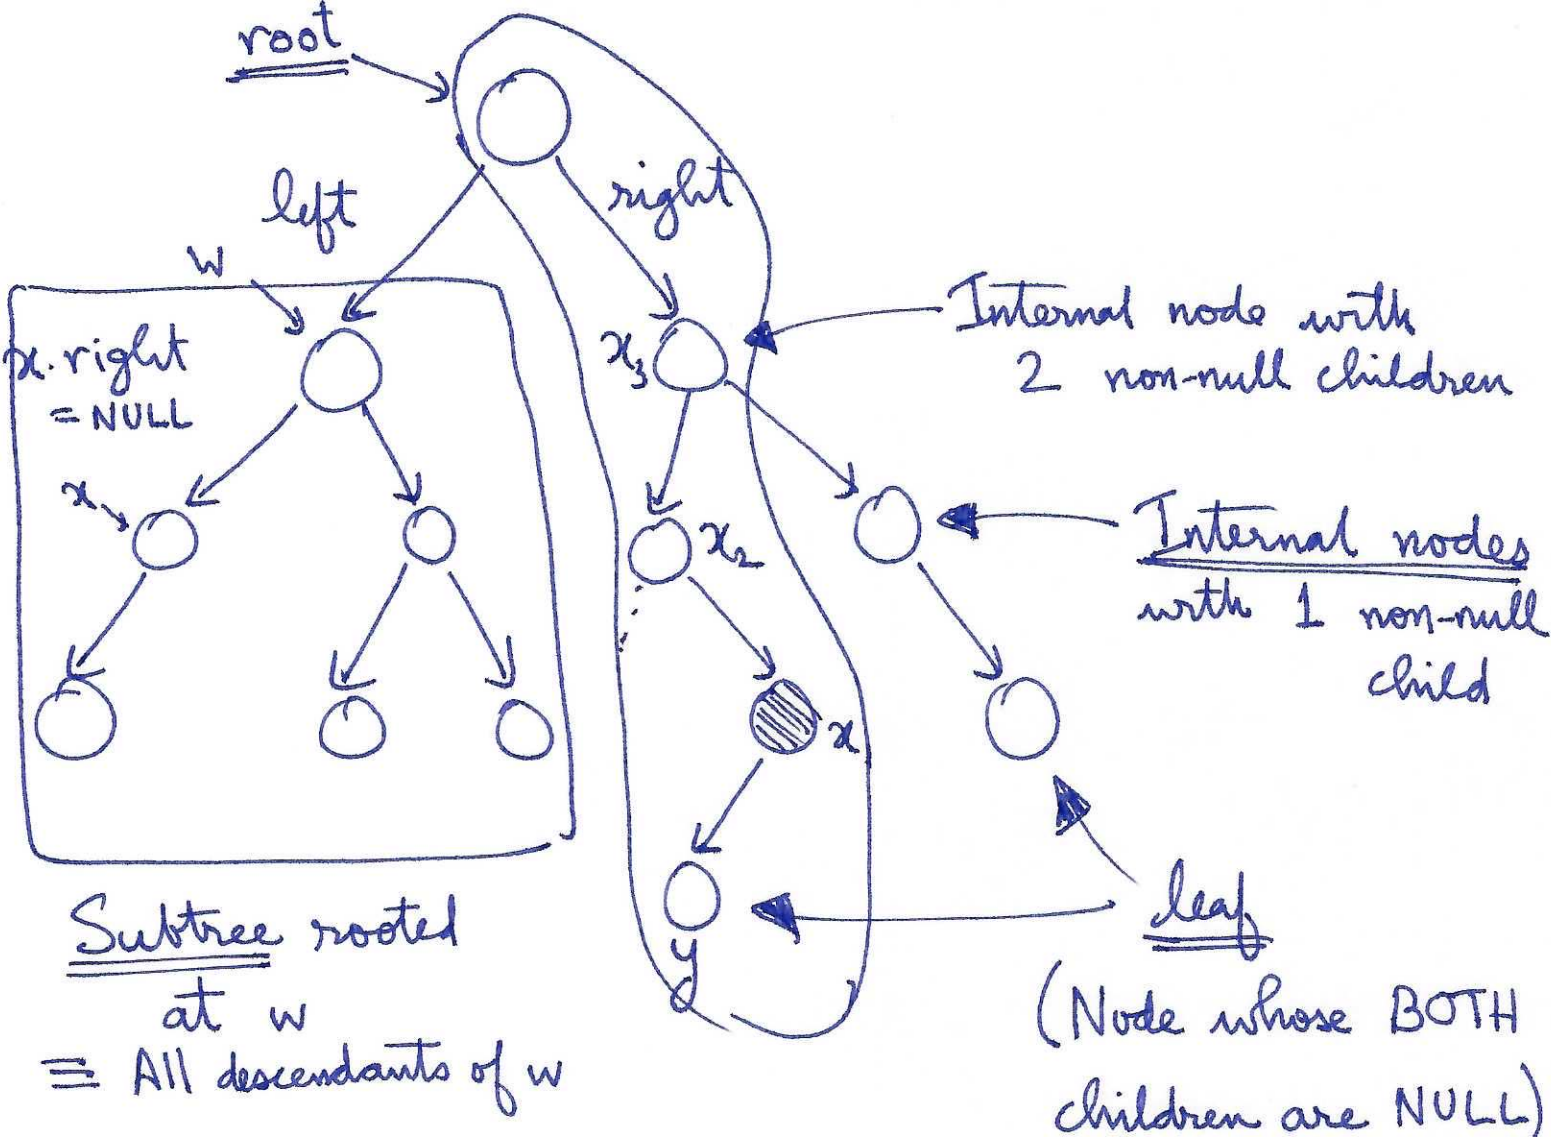 root
left
right
w
x.right
= NULL
x
x₃
Internal node with
2 non-null children
x₂
Internal nodes
with 1 non-null
child
x
y
leaf
(Node whose BOTH
children are NULL)
Subtree rooted
at w
≡ All descendants of w